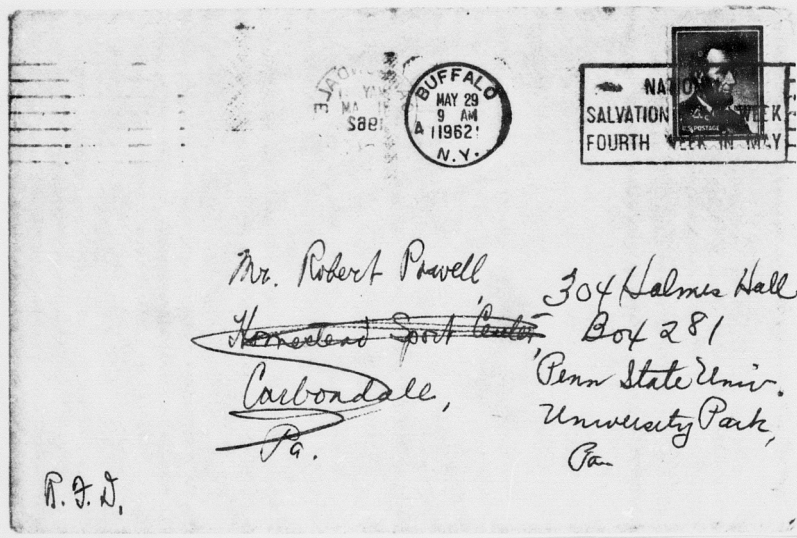 BUFFALO
MAY 29
9 AM
1962
N.Y.
NATION
SALVATION WEEK
FOURTH WEEK IN MAY
U.S. POSTAGE
Mr. Robert Powell
Homestead Sport Center,
Carbondale,
Pa.
304 Holmes Hall
Box 281
Penn State Univ.
University Park,
Pa
R.F.D.